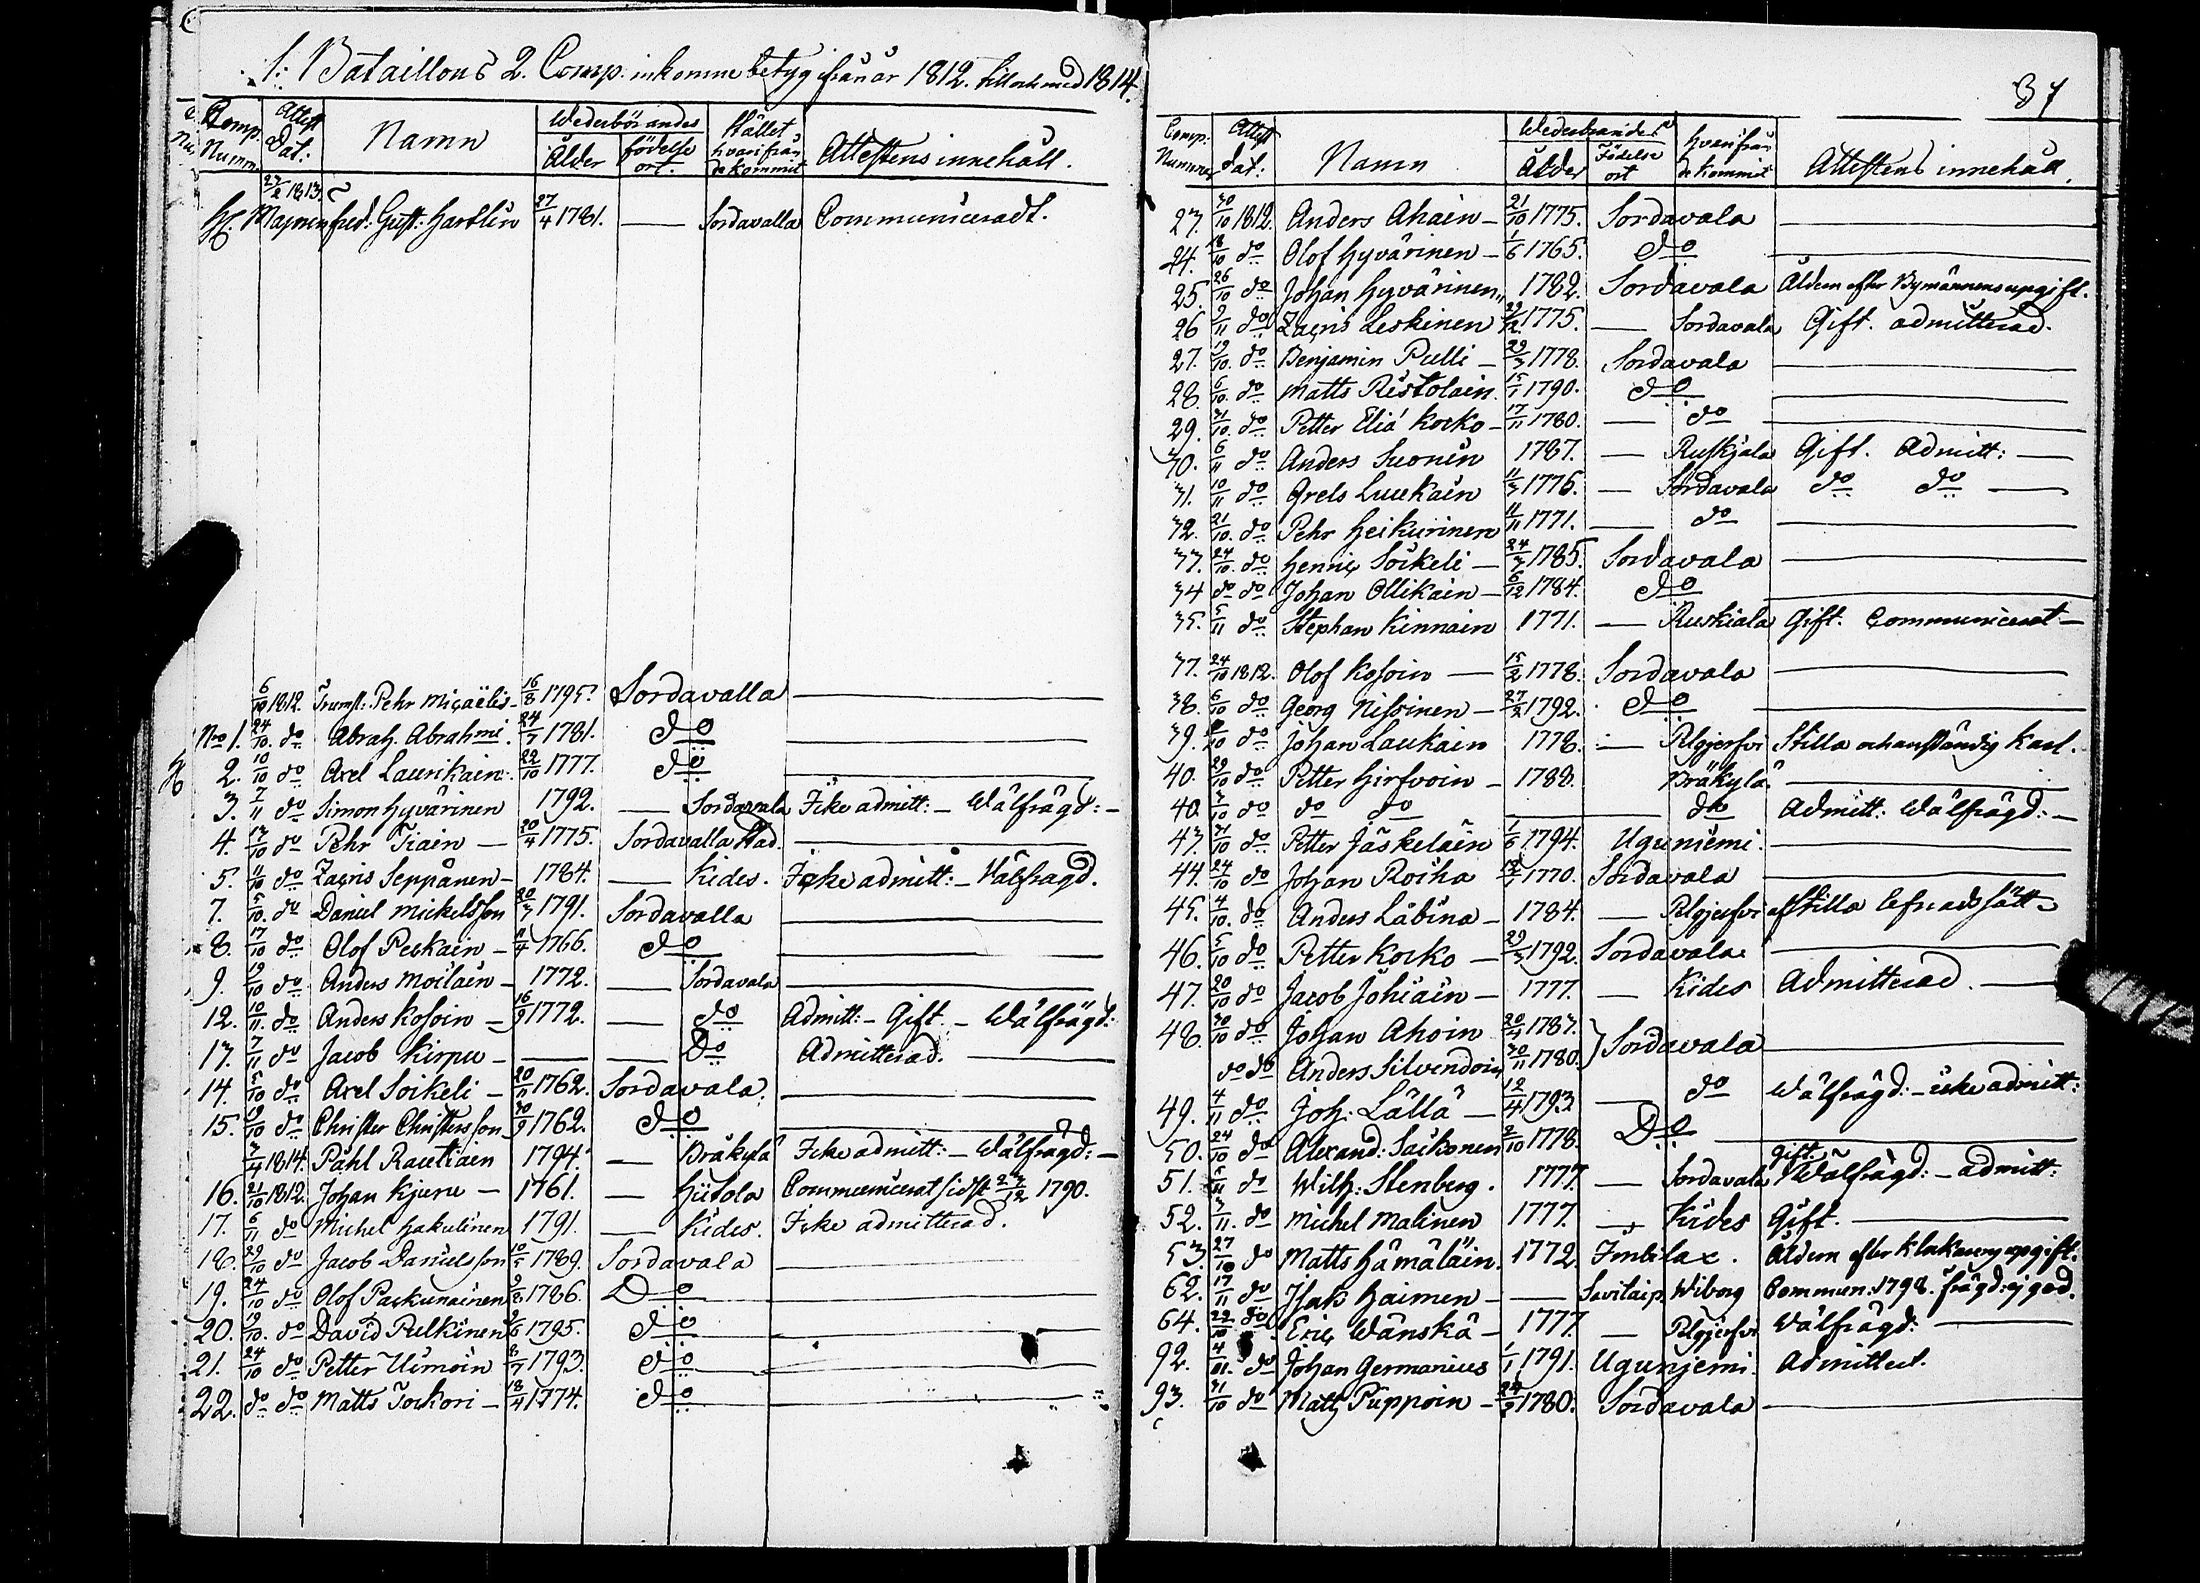 1: Bataillons 2. Comp. inkomne betyg ifrån år 1812. till och med 1814.
Comp. Numm. Attest Dat: Namn Wederbörandes Ålder födelse ort. Stället hvarifrån de kommit Attestens innehåll.
27/2 1813
Fred: Gust: Hartlin 27/4 1781. — Sordavalla Communiceradt.
6/10 1812. Trumsl: Pehr Micaëlis 16/8 1795. Sordavalla —
No 1. 24/10. do Abrah. Abrahmi. 24/7 1781. do —
2. 10/10 do Axel Laurikain 22/10 1777. do —
3. 7/11 do Simon Hyvärinen 1792. — Sordavala Icke admitt: — Wälfrägd: —
4. 13/10 do Pehr Tiain — 20/4 1775. Sordavalla Stad. —
5. 11/10 do Zacris Seppänen — 1784. — Kides. Icke admitt: — Wälfrägd.
7. 5/10. do Daniel Mickelsson 20/3 1791. Sordavalla —
8. 17/10 do Olof Peskain — 11/4 1766. do —
9. 19/10 do Anders Moilain — 1772. — Sordavala —
12. 10/11. do Anders Kosoin — 16/9 1772. — do Admitt: — Gift — Wälfrägd:
13. 7/11 do Jacob Kirpu — — — Do Admitterad. —
14. 5/10 do Axel Soikeli — 20/11 1762. Sordavala. —
15. 19/10 do Christer Christersson 30/9 1762. do —
3/4 1814. Påhl Rautiain 1794. — Bräkylä Icke admitt: — Wälfrägd: —
16. 21/10 1812. Johan Kjuru — 1761. — Hiitola Communicerat sidst 27/12 1790.
17. 6/11 do Michel Hakulinen 1791. — Kides. Icke admitterad.
18. 29/10 do Jacob Danielsson 10/5 1789. Sordavala —
19. 24/10 do Olof Paskunainen 9/8 1786. Do —
20. 19/10. do David Pulkinen 9/6 1795. do —
21. 24/10 do Petter Uimoin 8/7 1793. do —
22. do do Matts Tockori — 18/4 1774. do —
37
Comp: Nummer Attest dat: Namn Wederbörandes Ålder Födelse ort hvarifrån de kommit Attestens innehåll.
23. 30/10 1812. Anders Ahain — 21/10 1775. Sordavala —
24. 18/10 do Olof Hyvärinen — 1/6 1765. do —
25. 26/10 do Johan Hyvärinen 1782. Sordavala Åldern efter Bymännens upgift.
26 9/11 do Zacris Leskinen 1775. — Sordavala Gift. admitterad.
27. 19/10. do Benjamin Pulli — 29/3 1778. Sordavala —
28. 6/10. do Matts Ristolain. 15/1 1790. do —
29. 31/10. do Petter Eliä Korko — 17/11 1780. — do —
30. 6/11 do Anders Suonin 1787. — Ruskjala Gift. Admitt: —
31. 10/11 do Grels Luukain 11/3 1776. — Sordavala do do —
32. 21/10. do Pehr Heikurinen 11/11 1771. — do —
33. 24/10. do Henric Soikeli — 24/3 1785. Sordavala —
34 do do Johan Ollikain — 6/12 1784. do —
35. 5/11 do Stephan Kinnain 1771. — Ruskiala Gift. Communicerat —
37. 24/10 1812. Olof Kosoin — 15/2 1778. Sordavala —
38. 6/10 do Georg Nissinen — 27/2 1792. do —
39. 10 do Johan Laukain 1778. — Pelgjerfvi Stilla och anständig Karl.
40. 29/10 do Petter Hirfvoin — 1788. Bräkylä —
40. 3/10 do do do — do Admitt: Wälfrägd: —
43. 31/10 do Petter Jäskeläin 1/6 1794. Uguniemi. —
44. 24/10 do Johan Roiha 1770. Sordavala —
45. 4/10. do Anders Läbinä — 1784. — Pelgjerfvi af Stilla lefnadssätt —
46. 5/10 do Petter Korko — 29/3 1792. Sordavala. —
47. 20/10 do Jacob Johiain — 1777. — Kides Admitterad. —
48. 30/10 do Johan Ahoin 20/4 1787. } Sordavala —
do do Anders Silvendoin 30/11 1780.
49. 4/11 do Joh: Lällä — 12/4 1793 — do Wälfrägd: — icke admitt:
50. 24/10 do Alexand: Saikonen 2/10 1778. Do —
51. 5/11 do Wilh: Stenberg. 1777. — Sordavala gift. Wälfrägd: — admitt:
52. 3/11. do Michel Malinen 1777. — Kides Gift. —
53. 27/10 do Matts Hämäläin. 1772. Imbilax. Åldern efter Klockarens upgift.
62. 17/11 do Isak Haimen — — Savitaip. Wiborg Commun: 1798. frägd: ej god.
64. 29/10 do Eric Wänskä — 1777. — Pelgjerfvi Wälfrägd: —
92. 4/01. do Johan Germanius 1/1 1791. Ugunjemi. Admitterd.
93. 31/10 do Matts Puppoin — 24/2 1780. Sordavala —